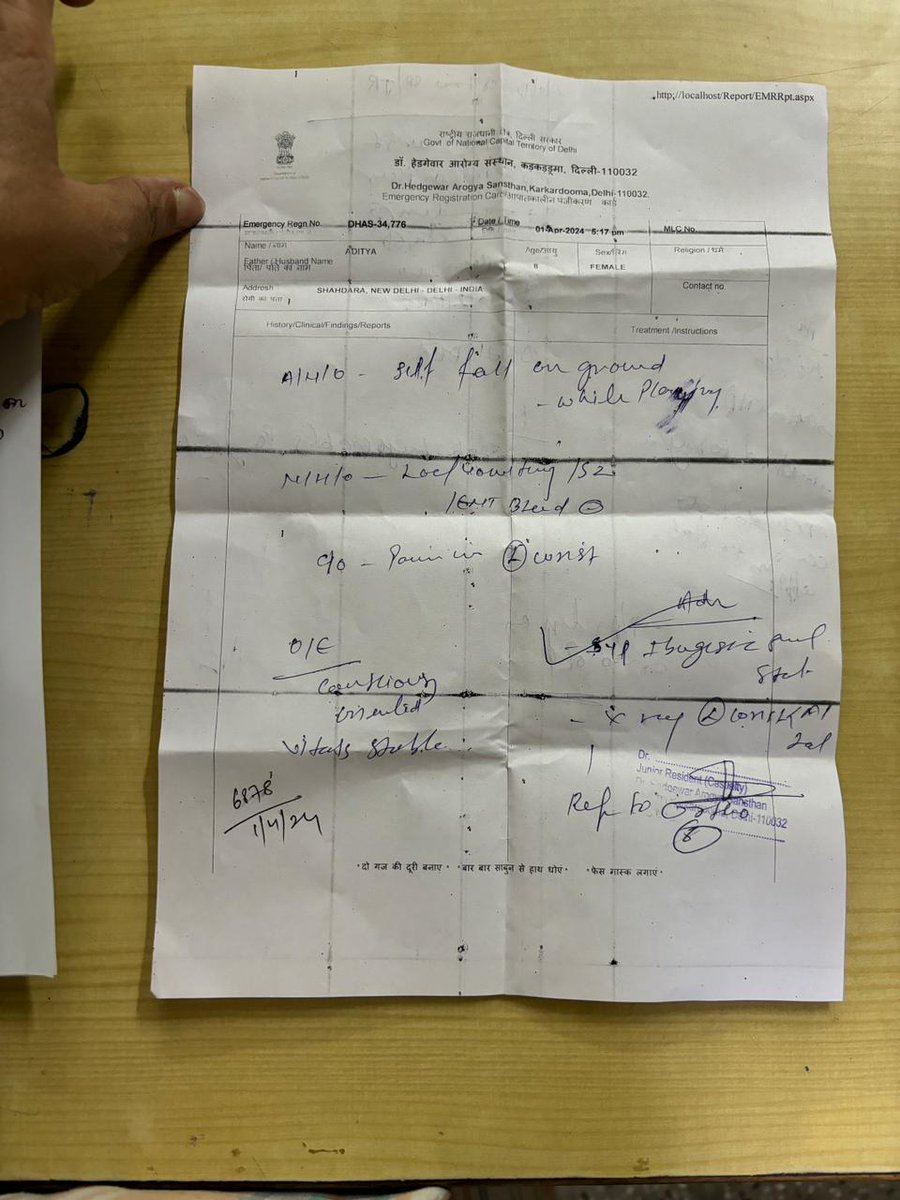 http://localhost/Report/EMRRpt.aspx
राष्ट्रीय राजधानी क्षेत्र, दिल्ली सरकार
Govt of National Capital Territory of Delhi
डॉ. हेडगेवार आरोग्य संस्थान, कड़कड़डूमा, दिल्ली-110032
Dr.Hedgewar Arogya Sansthan,Karkardooma,Delhi-110032.
Emergency Registration Card/आपातकालीन पंजीकरण कार्ड
Emergency Regn No. DHAS-34,776 Date / Time 01-Apr-2024 5:17 pm MLC No.
Name / नाम ADITYA Age/आयु 8 Sex/लिंग FEMALE Religion / धर्म
Father / Husband Name
पिता/ पति का नाम
Address SHAHDARA, NEW DELHI - DELHI - INDIA Contact no.
रोगी का पता
History/Clinical/Findings/Reports Treatment /Instructions
A/H/O - self fall on ground
- while Playing
N/H/O - LOC/Vomiting /SZ
/ENT Bleed ⊖
C/O - Pain in Ⓛ wrist
Adv
O/E - Syp Ibugesic
stat
Conscious
oriented
- X ray Ⓛ wrist AP
Lat
vitals stable
Dr.
Junior Resident (Casualty)
Dr. Hedgewar Arogya Sansthan
Delhi-110032
Ref to Ortho
8
6878
1/4/24
* दो गज की दूरी बनाए * बार बार साबुन से हाथ धोएं * फेस मास्क लगाएं *